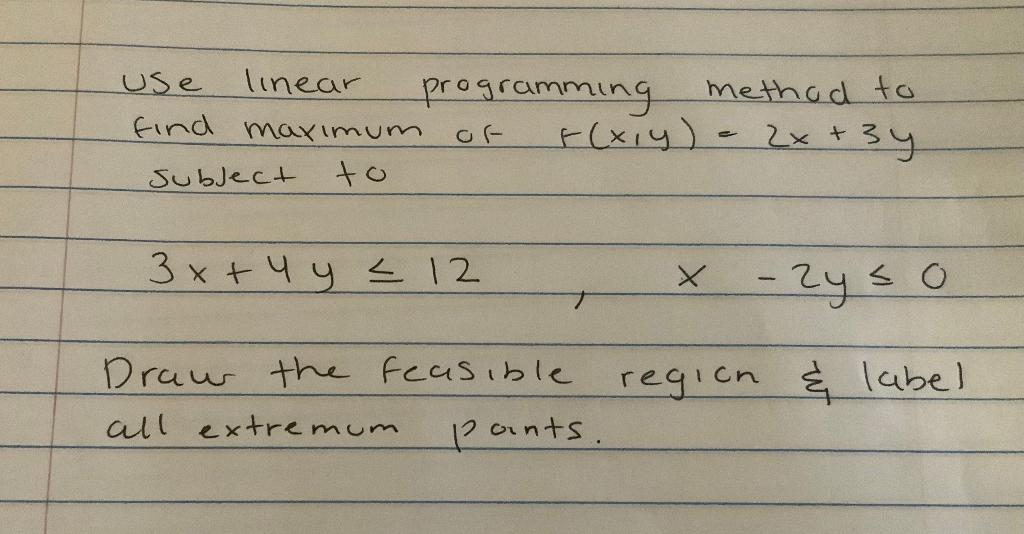 Use linear programming method to
find maximum of F(x,y) = 2x + 3y
subject to
3x + 4y ≤ 12 , x - 2y ≤ 0
Draw the feasible region & label
all extremum points.